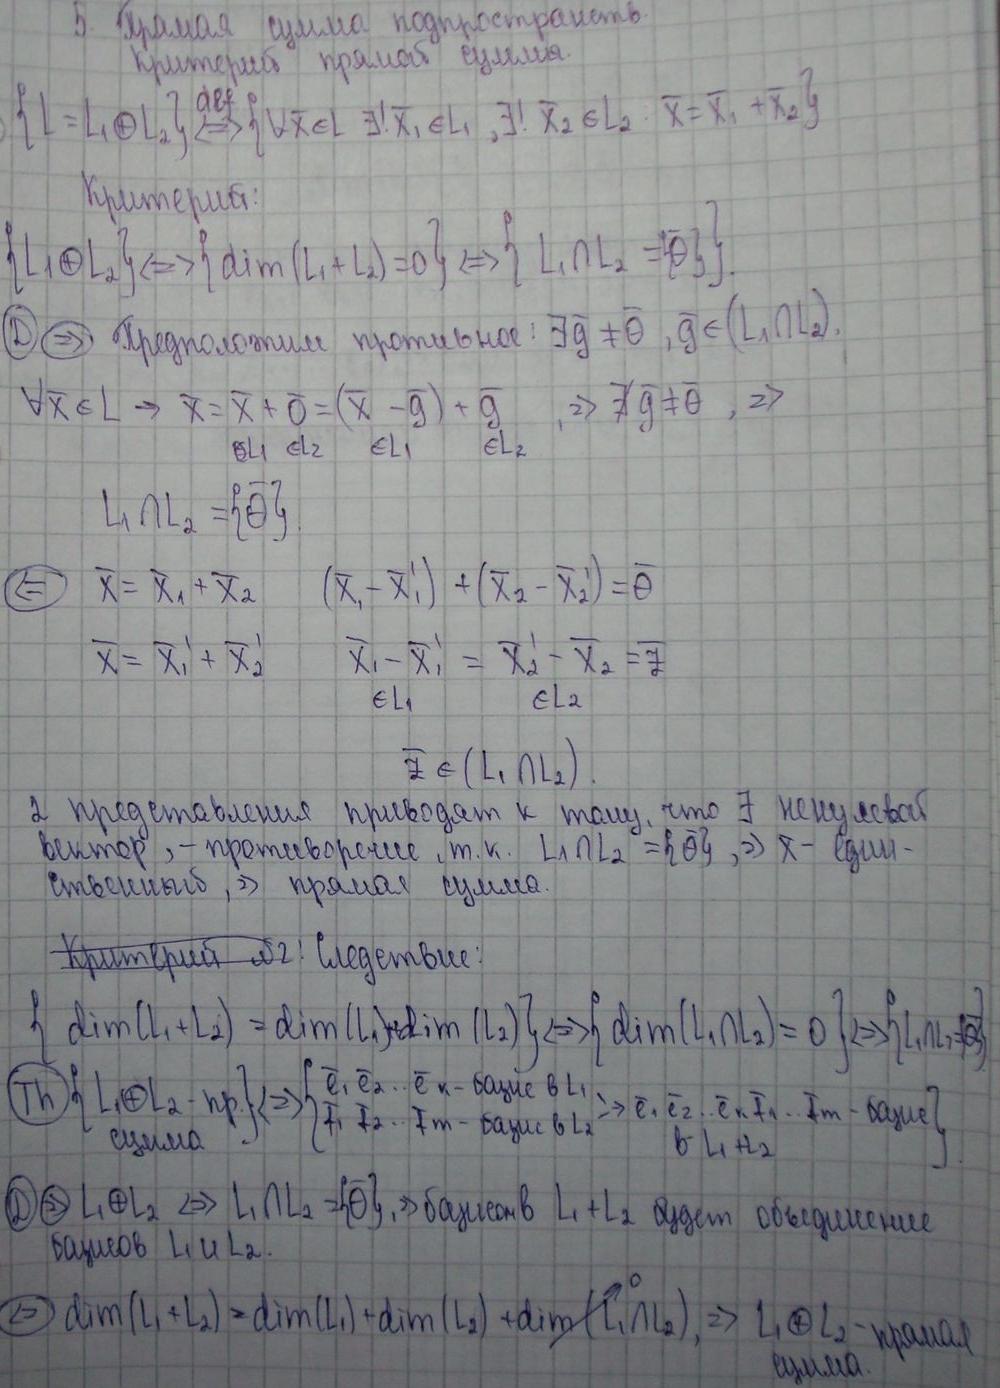 5. Прямая сумма подпространств.
Критерий прямой суммы.
{L = L₁⊕L₂} <=>^def {∀x̄∈L ∃! x̄₁∈L₁, ∃! x̄₂∈L₂ : x̄ = x̄₁ + x̄₂}
Критерий:
{L₁⊕L₂} <=> {dim(L₁+L₂)=0} <=> {L₁∩L₂ = {θ̄}}.
Ⓓ => Предположим противное: ∃ḡ ≠ θ̄, ḡ∈(L₁∩L₂).
∀x̄∈L → x̄ = x̄ + ō = (x̄ - ḡ) + ḡ , => ∄ḡ≠θ̄ , =>
∈L₁ ∈L₂ ∈L₁ ∈L₂
L₁∩L₂ = {θ̄}.
<= x̄ = x̄₁ + x̄₂ (x̄₁ - x̄₁') + (x̄₂ - x̄₂') = θ̄
x̄ = x̄₁' + x̄₂' x̄₁ - x̄₁' = x̄₂' - x̄₂ = z̄
∈L₁ ∈L₂
z̄ ∈ (L₁∩L₂).
2 представления приводят к тому, что ∃ ненулевой
вектор, - противоречие, т.к. L₁∩L₂ = {θ̄}, => x̄ - един-
ственный, => прямая сумма.
Критерий №2: Следствие:
{dim(L₁+L₂) = dim(L₁)+dim(L₂)} <=> {dim(L₁∩L₂) = 0} <=> {L₁∩L₂={θ̄}}
Th {L₁⊕L₂ - пр. <=> {ē₁ ē₂ .. ēk - базис в L₁
сумма} f̄₁ f̄₂ .. f̄m - базис в L₂ => ē₁ ē₂ .. ēk f̄₁ .. f̄m - базис
в L₁+L₂}.
Ⓓ => L₁⊕L₂ <=> L₁∩L₂ = {θ̄}, => базисом в L₁+L₂ будет объединение
базисов L₁ и L₂.
<= dim(L₁+L₂) = dim(L₁) + dim(L₂) + dim(L₁∩L₂)⁰, => L₁⊕L₂ - прямая
сумма.